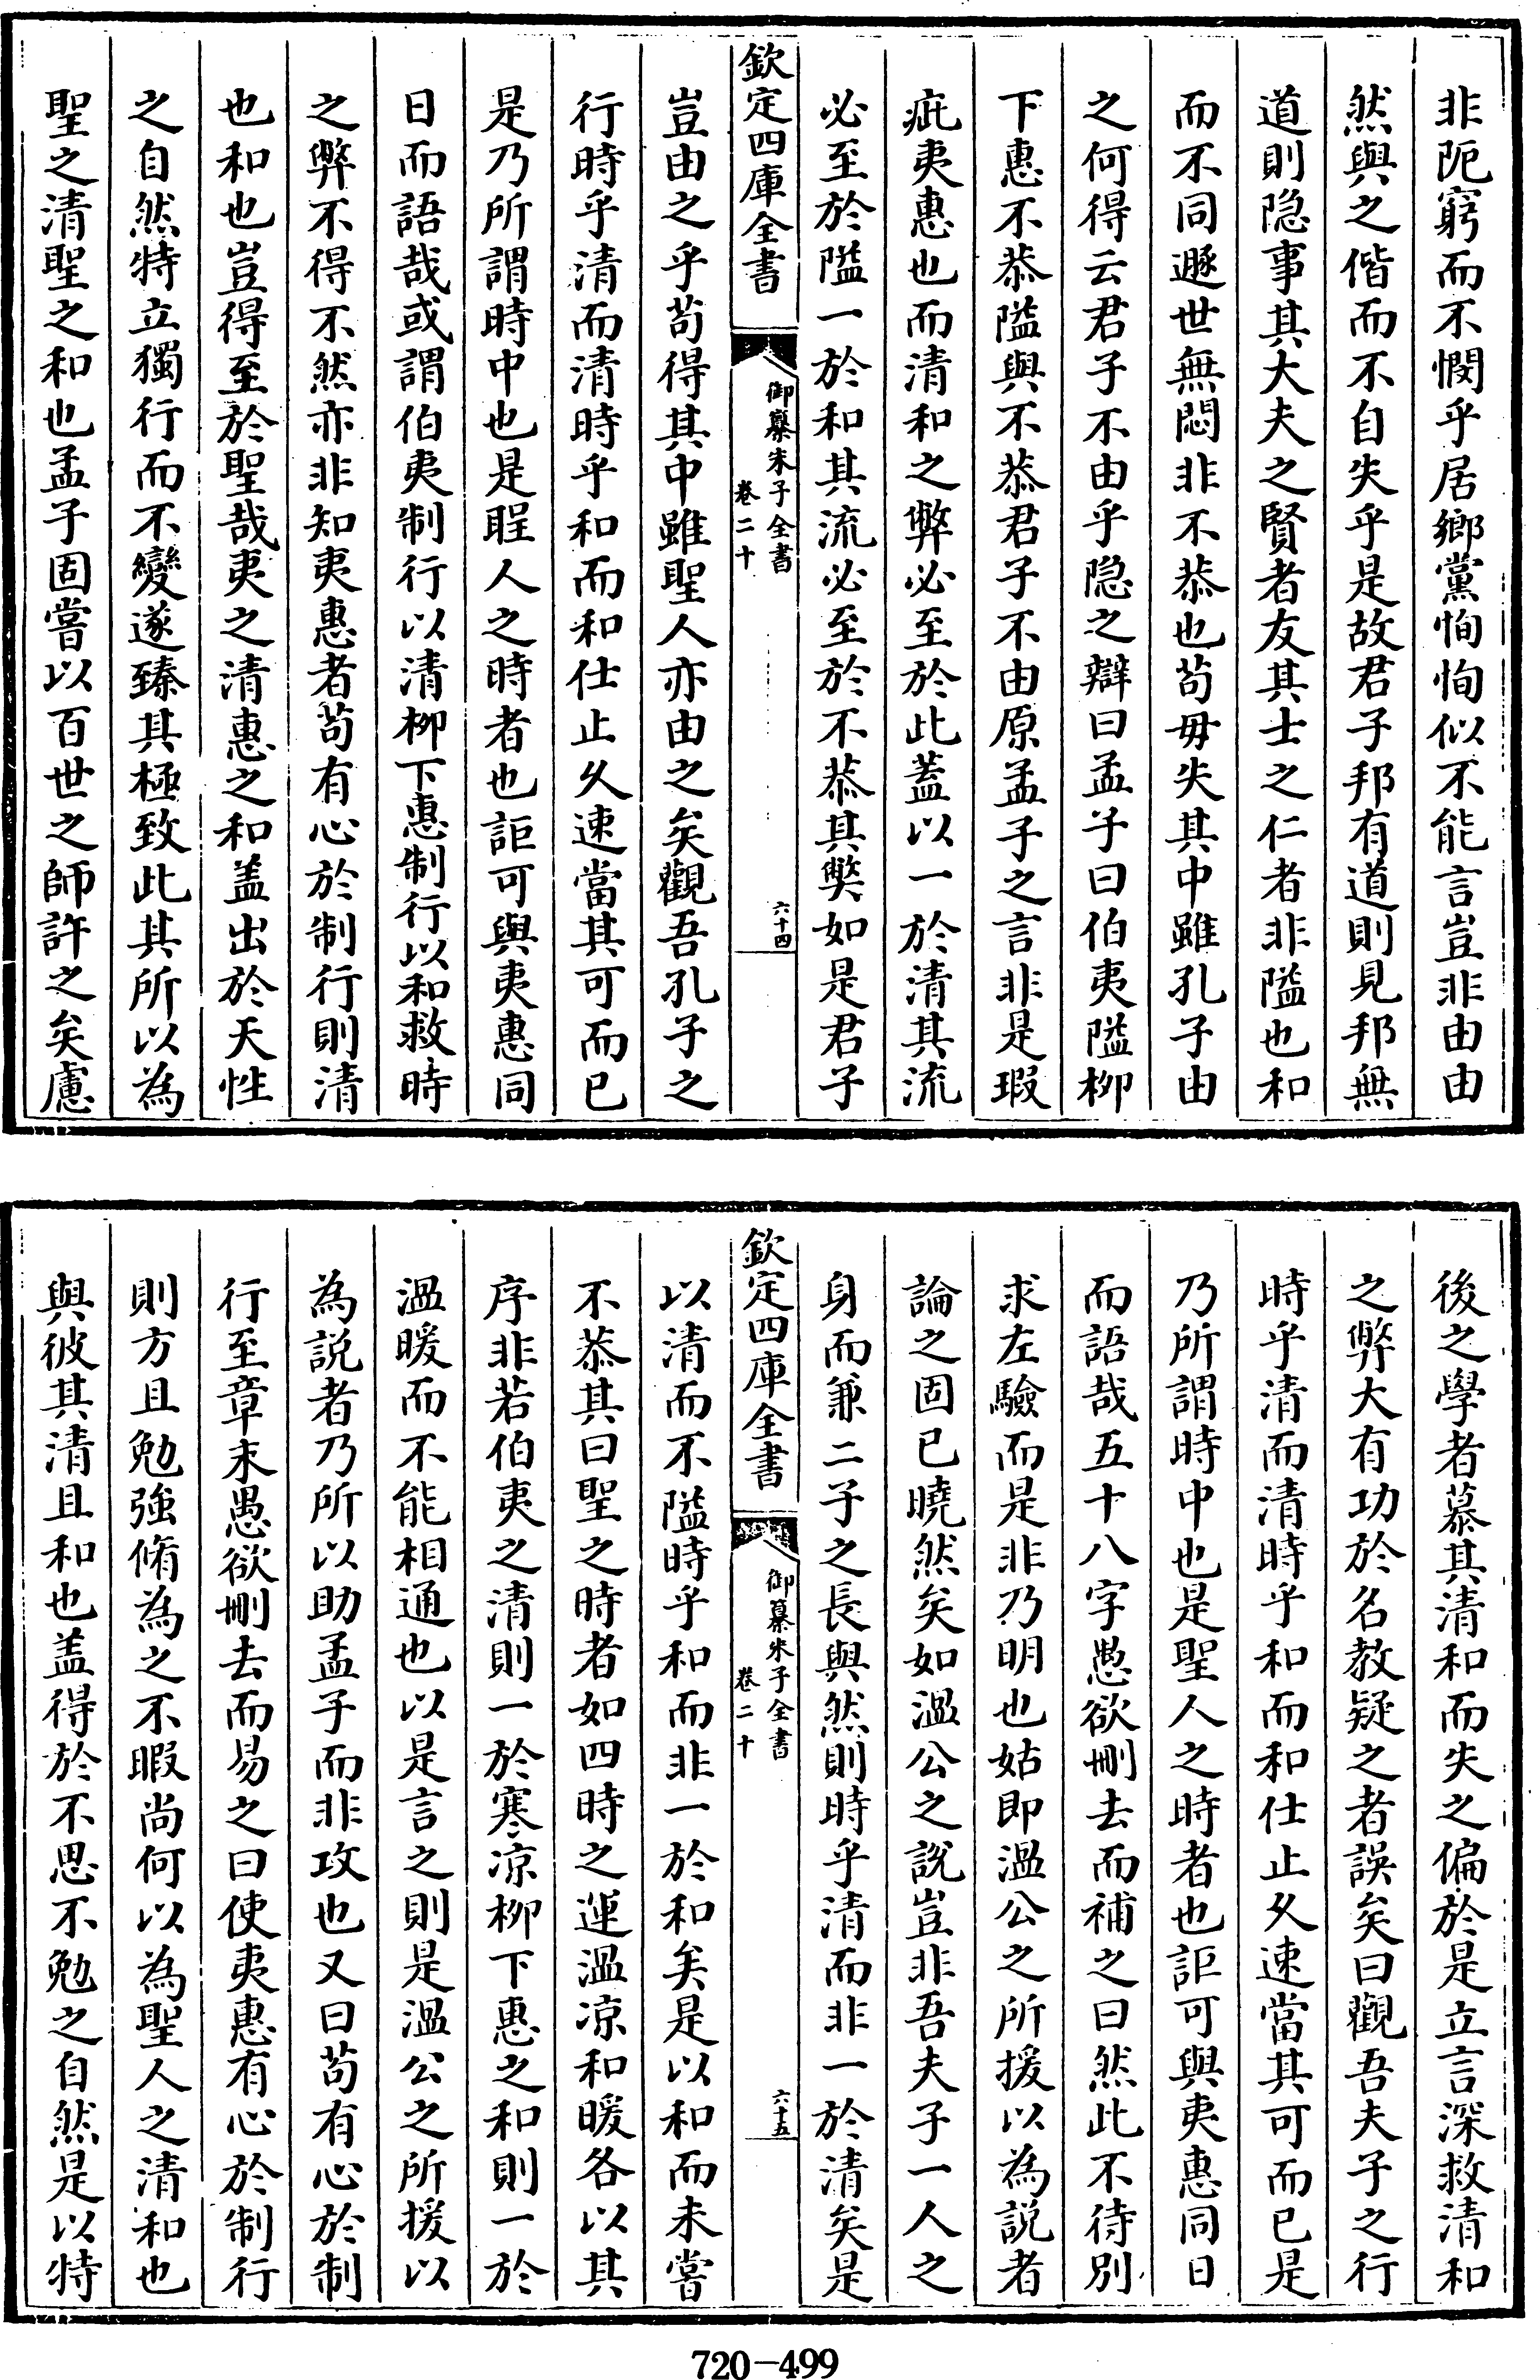 非阨窮而不憫乎居鄉黨恂恂似不能言豈非由由
然與之偕而不自失乎是故君子邦有道則見邦無
道則隐事其大夫之賢者友其士之仁者非隘也和
而不同遯世無悶非不恭也苟毋失其中雖孔子由
之何得云君子不由乎隐之辯曰孟子曰伯夷隘柳
下惠不恭隘與不恭君子不由原孟子之言非是瑕
疵夷惠也而清和之弊必至於此蓋以一於清其流
必至於隘一於和其流必至於不恭其弊如是君子
欽定四庫全書
御纂朱子全書
卷二十
六十四
豈由之乎苟得其中雖聖人亦由之矣觀吾孔子之
行時乎清而清時乎和而和仕止久速當其可而已
是乃所謂時中也是聖人之時者也詎可與夷惠同
日而語哉或謂伯夷制行以清柳下惠制行以和救時
之弊不得不然亦非知夷惠者苟有心於制行則清
也和也豈得至於聖哉夷之清惠之和盖出於天性
之自然特立獨行而不變遂臻其極致此其所以為
聖之清聖之和也孟子固嘗以百世之師許之矣慮
後之學者慕其清和而失之偏於是立言深救清和
之弊大有功於名教疑之者誤矣曰觀吾夫子之行
時乎清而清時乎和而和仕止久速當其可而已是
乃所謂時中也是聖人之時者也詎可與夷惠同日
而語哉五十八字愚欲刪去而補之曰然此不待別
求左驗而是非乃明也姑即溫公之所援以為說者
論之固已曉然矣如溫公之說豈非吾夫子一人之
身而兼二子之長與然則時乎清而非一於清矣是
欽定四庫全書
御纂朱子全書
卷二十
六十五
以清而不隘時乎和而非一於和矣是以和而未嘗
不恭其曰聖之時者如四時之運溫凉和暖各以其
序非若伯夷之清則一於寒凉柳下惠之和則一於
溫暖而不能相通也以是言之則是溫公之所援以
為說者乃所以助孟子而非攻也又曰苟有心於制
行至章末愚欲刪去而易之曰使夷惠有心於制行
則方且勉強脩為之不暇尚何以為聖人之清和也
與彼其清且和也盖得於不思不勉之自然是以特
720-499